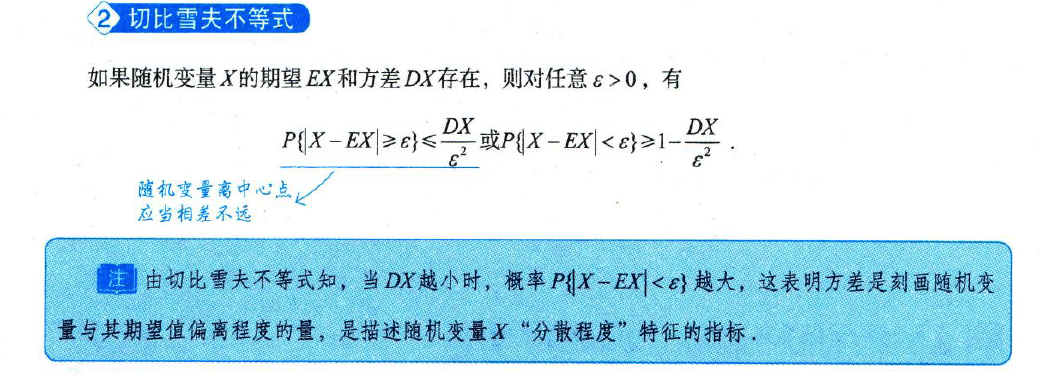 2 切比雪夫不等式
如果随机变量X的期望EX和方差DX存在，则对任意ε>0，有
P{|X-EX|≥ε}≤DX/ε²或P{|X-EX|<ε}≥1-DX/ε².
随机变量离中心点
应当相差不远
注 由切比雪夫不等式知，当DX越小时，概率P{|X-EX|<ε}越大，这表明方差是刻画随机变
量与其期望值偏离程度的量，是描述随机变量X“分散程度”特征的指标.